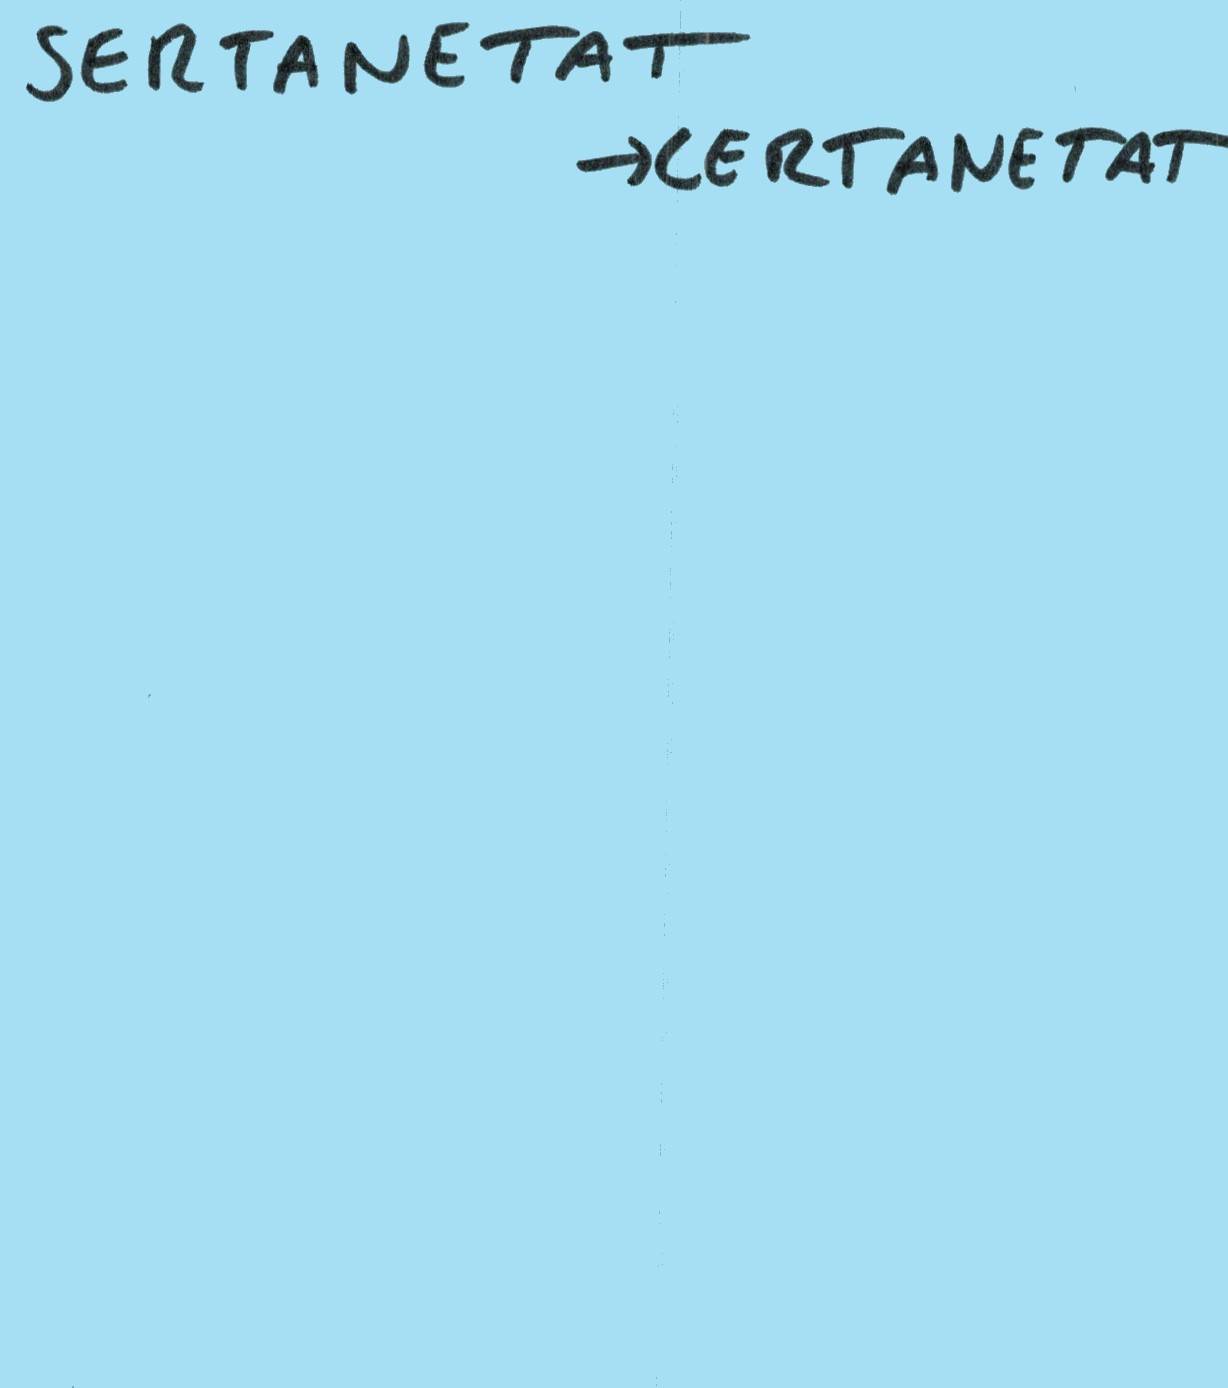 SERTANETAT
→CERTANETAT